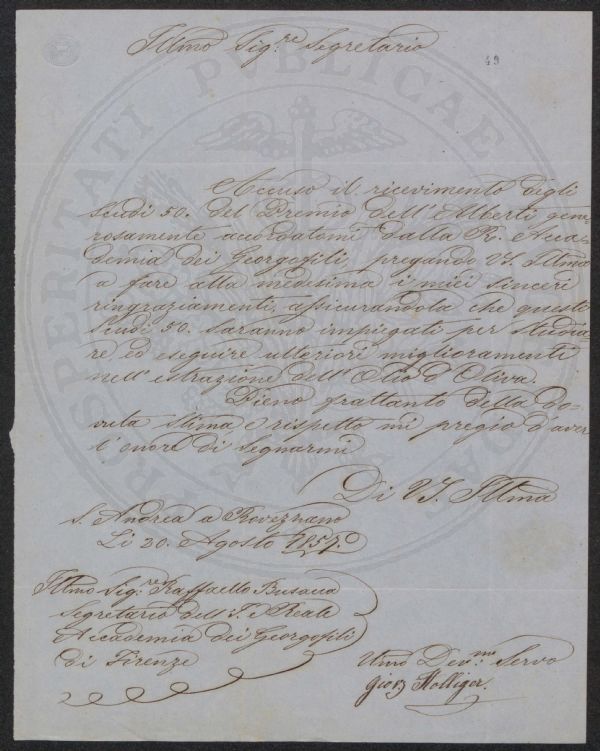 Illmo Sig.re Segretario
49
Accuso il ricevimento degli
Scudi 50. del Premio dell'Alberti gene-
rosamente accordatomi dalla R. Acca-
demia dei Georgofili, pregando VS. Illma
a fare alla medesima i miei sinceri
ringraziamenti, assicurandola che questi
Scudi 50. saranno impiegati per studia-
re ed eseguire ulteriori miglioramenti
nell'estrazione dell'Olio d'Oliva.
Pieno frattanto della do-
vuta stima e rispetto mi pregio d'aver
l'onore di segnarmi
Di VS. Illma
S. Andrea a Rovezzano
Li 20. Agosto 1857.
Illmo Sig.re Raffaello Busacca
Segretario dell'I. e Reale
Accademia dei Georgofili
di Firenze
Umo Dev.mo Servo
PROSPERITATI PVBLICAE